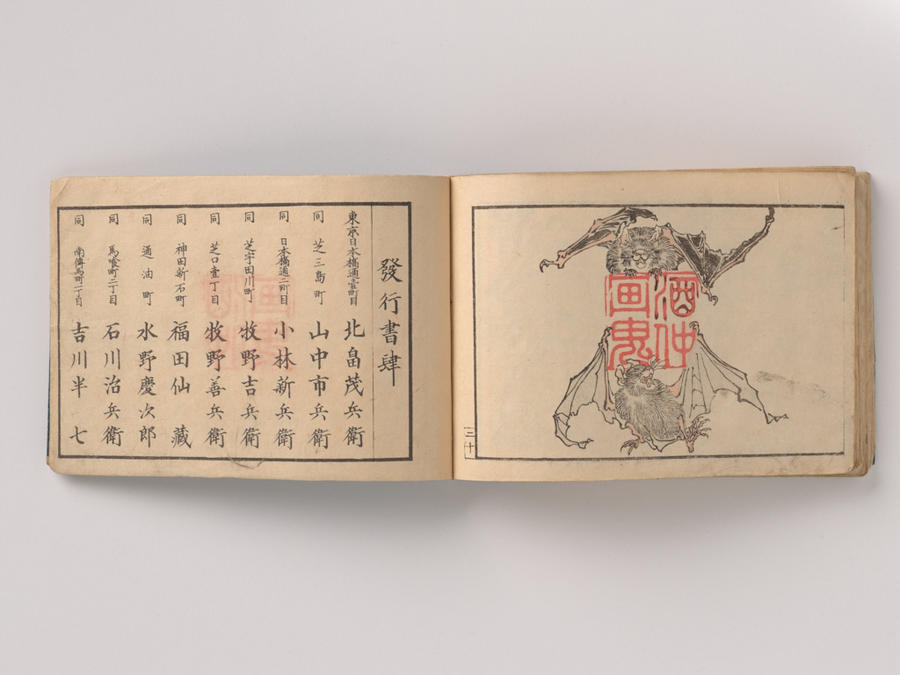 發行書肆
東京日本橋通壹町目 北畠茂兵衛
同 芝三島町 山中市兵衛
同 日本橋通二町目 小林新兵衛
同 芝宇田川町 牧野吉兵衛
同 芝口壹丁目 牧野善兵衛
同 神田新石町 福田仙藏
同 通油町 水野慶次郎
同 馬喰町二丁目 石川治兵衛
同 南傳馬町二丁目 吉川半七
三十